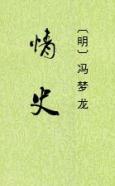 〔明〕冯梦龙
情史